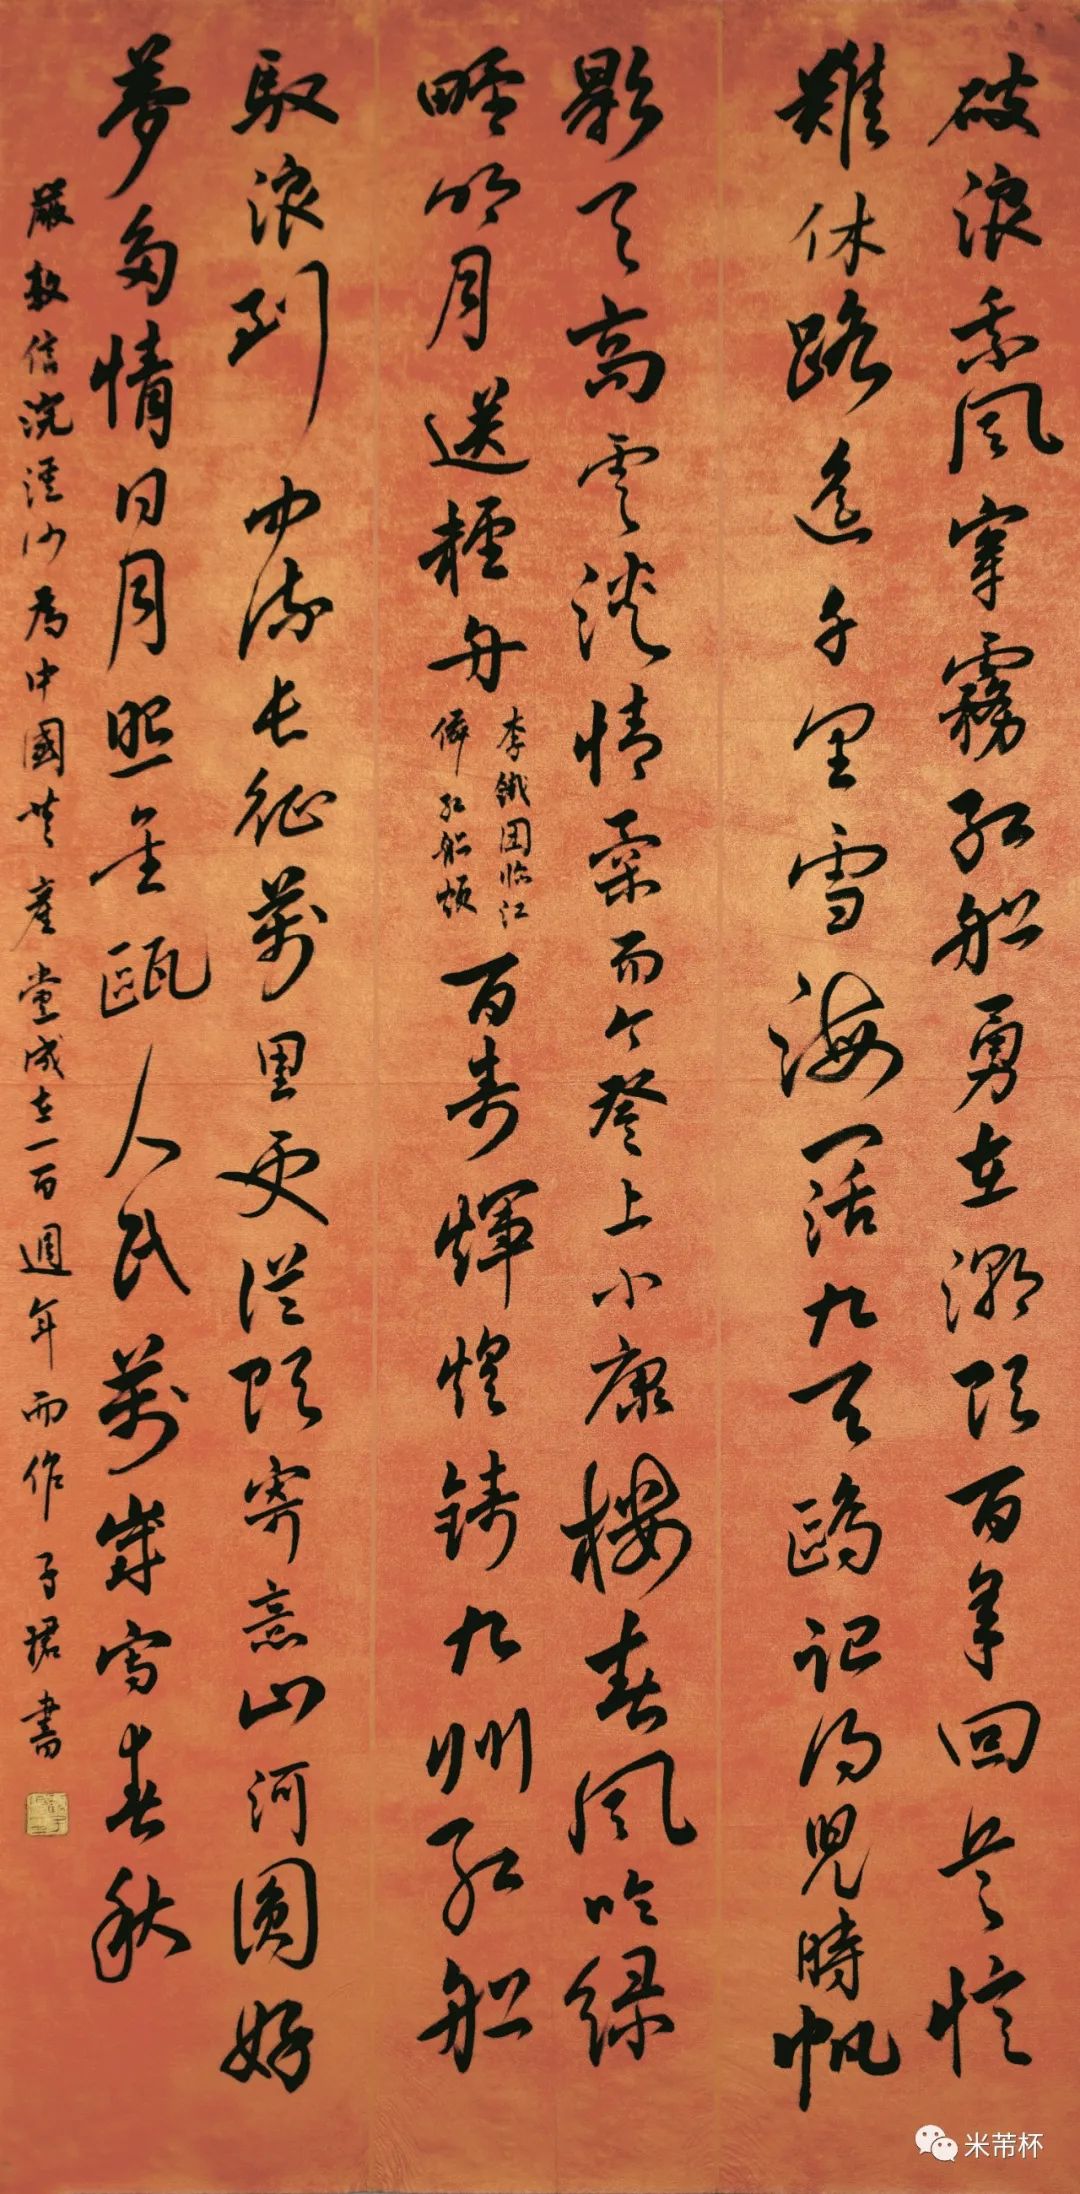 破浪乘風穿霧红船勇立潮頭百年回憶
難休路遥千里雪海闊九天鷗記得兒時帆
影天高雲淡情柔而今登上小康樓春風吟緑
野明月送輕舟
李鐵团临江
僊红船颂
百寿輝煌鑄九州红船
馭浪到中流长征萬里更從頭寄意山河圓好
夢多情日月照金甌人民萬歲寫春秋
嚴信浣溪沙為中國共產黨成立一百週年而作子珺書
米芾杯